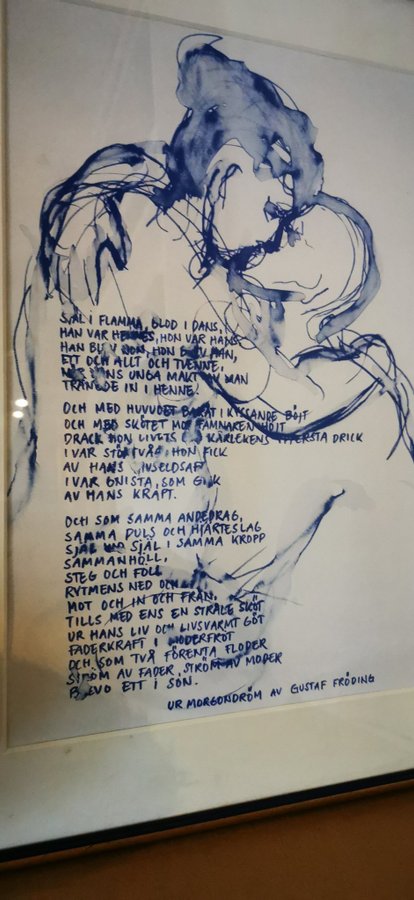 SJÄL I FLAMMA, BLOD I DANS,
HAN VAR HENNES, HON VAR HANS
HAN BLEV HON, HON BLEV HAN,
ETT OCH ALLT OCH TVENNE,
NÄR HANS UNGA MAKT AV MAN
TRÄNGDE IN I HENNE.
OCH MED HUVUDET BAKÅT I KYSSANDE BÖJT
OCH MED SKÖTET MOT FAMNAREN HÖJT
DRACK HON LIVETS OCH KÄRLEKENS YPPERSTA DRICK
I VAR STÖTVÅG HON FICK
AV HANS LIVSELDSAFT
I VAR GNISTA, SOM GICK
AV HANS KRAFT.
OCH SOM SAMMA ANDEDRAG,
SAMMA PULS OCH HJÄRTESLAG
SJÄL VID SJÄL I SAMMA KROPP
SAMMANHÖLL,
STEG OCH FÖLL
RYTMENS NED OCH
MOT OCH IN OCH FRÅN,
TILLS MED ENS EN STRÅLE SKÖT
UR HANS LIV OCH LIVSVARMT GÖT
FADERKRAFT I MODERFRÖT
OCH SOM TVÅ FÖRENTA FLODER
STRÖM AV FADER, STRÖM AV MODER
BLEVO ETT I SON.
UR MORGONDRÖM AV GUSTAF FRÖDING